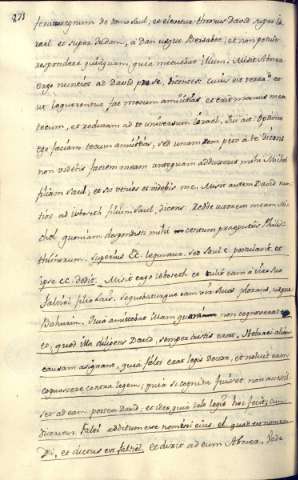 271
feratur regnum de domo Saul, et elevetur thronus David super Is-
rael et super Judam, a Dan usque Bersabee; et non potuit
respondere quidquam, quia metuebat illum. Misit Abner
ergo nuntios ad David pro se, dicentes: cuius est terra? et
ut loquerentur fac mecum amicitias, et erit manus mea
tecum, et reducam ad te universum Israel. Qui ait: Optime
ego faciam tecum amicitias, sed unam rem peto a te dicens
non videbis faciem meam antequam adduxeris mihi Michol
filiam Saul, et sic venies et videbis me. Misit autem David nun-
tios ad Isboseth filium Saul, dicens: Redde uxorem meam Mi-
chol quam despondi mihi centum praeputiis Philis-
thinorum. superius CC. legimus. sed Saul C. postulavit et
ipse CC. dedit. Misit ergo Isboseth et tulit eam a viro suo
Faltiel filio Lais, sequebaturque eam vir suus plorans, usque
Bahurim. Quia
et, quod illa diligens David, semper tristis erat, Hebraei aliam
causam asignant, quia Faltiel erat legis doctor, et noluit eam
cognoscere contra legem; quia si cognita fuisset non
ad eam postea David, et ideo quia
Falti additum est nomini eius el, quod est nomen
Dei, et dictus est Faltiel. Et dixit ad eum Abner, Vade